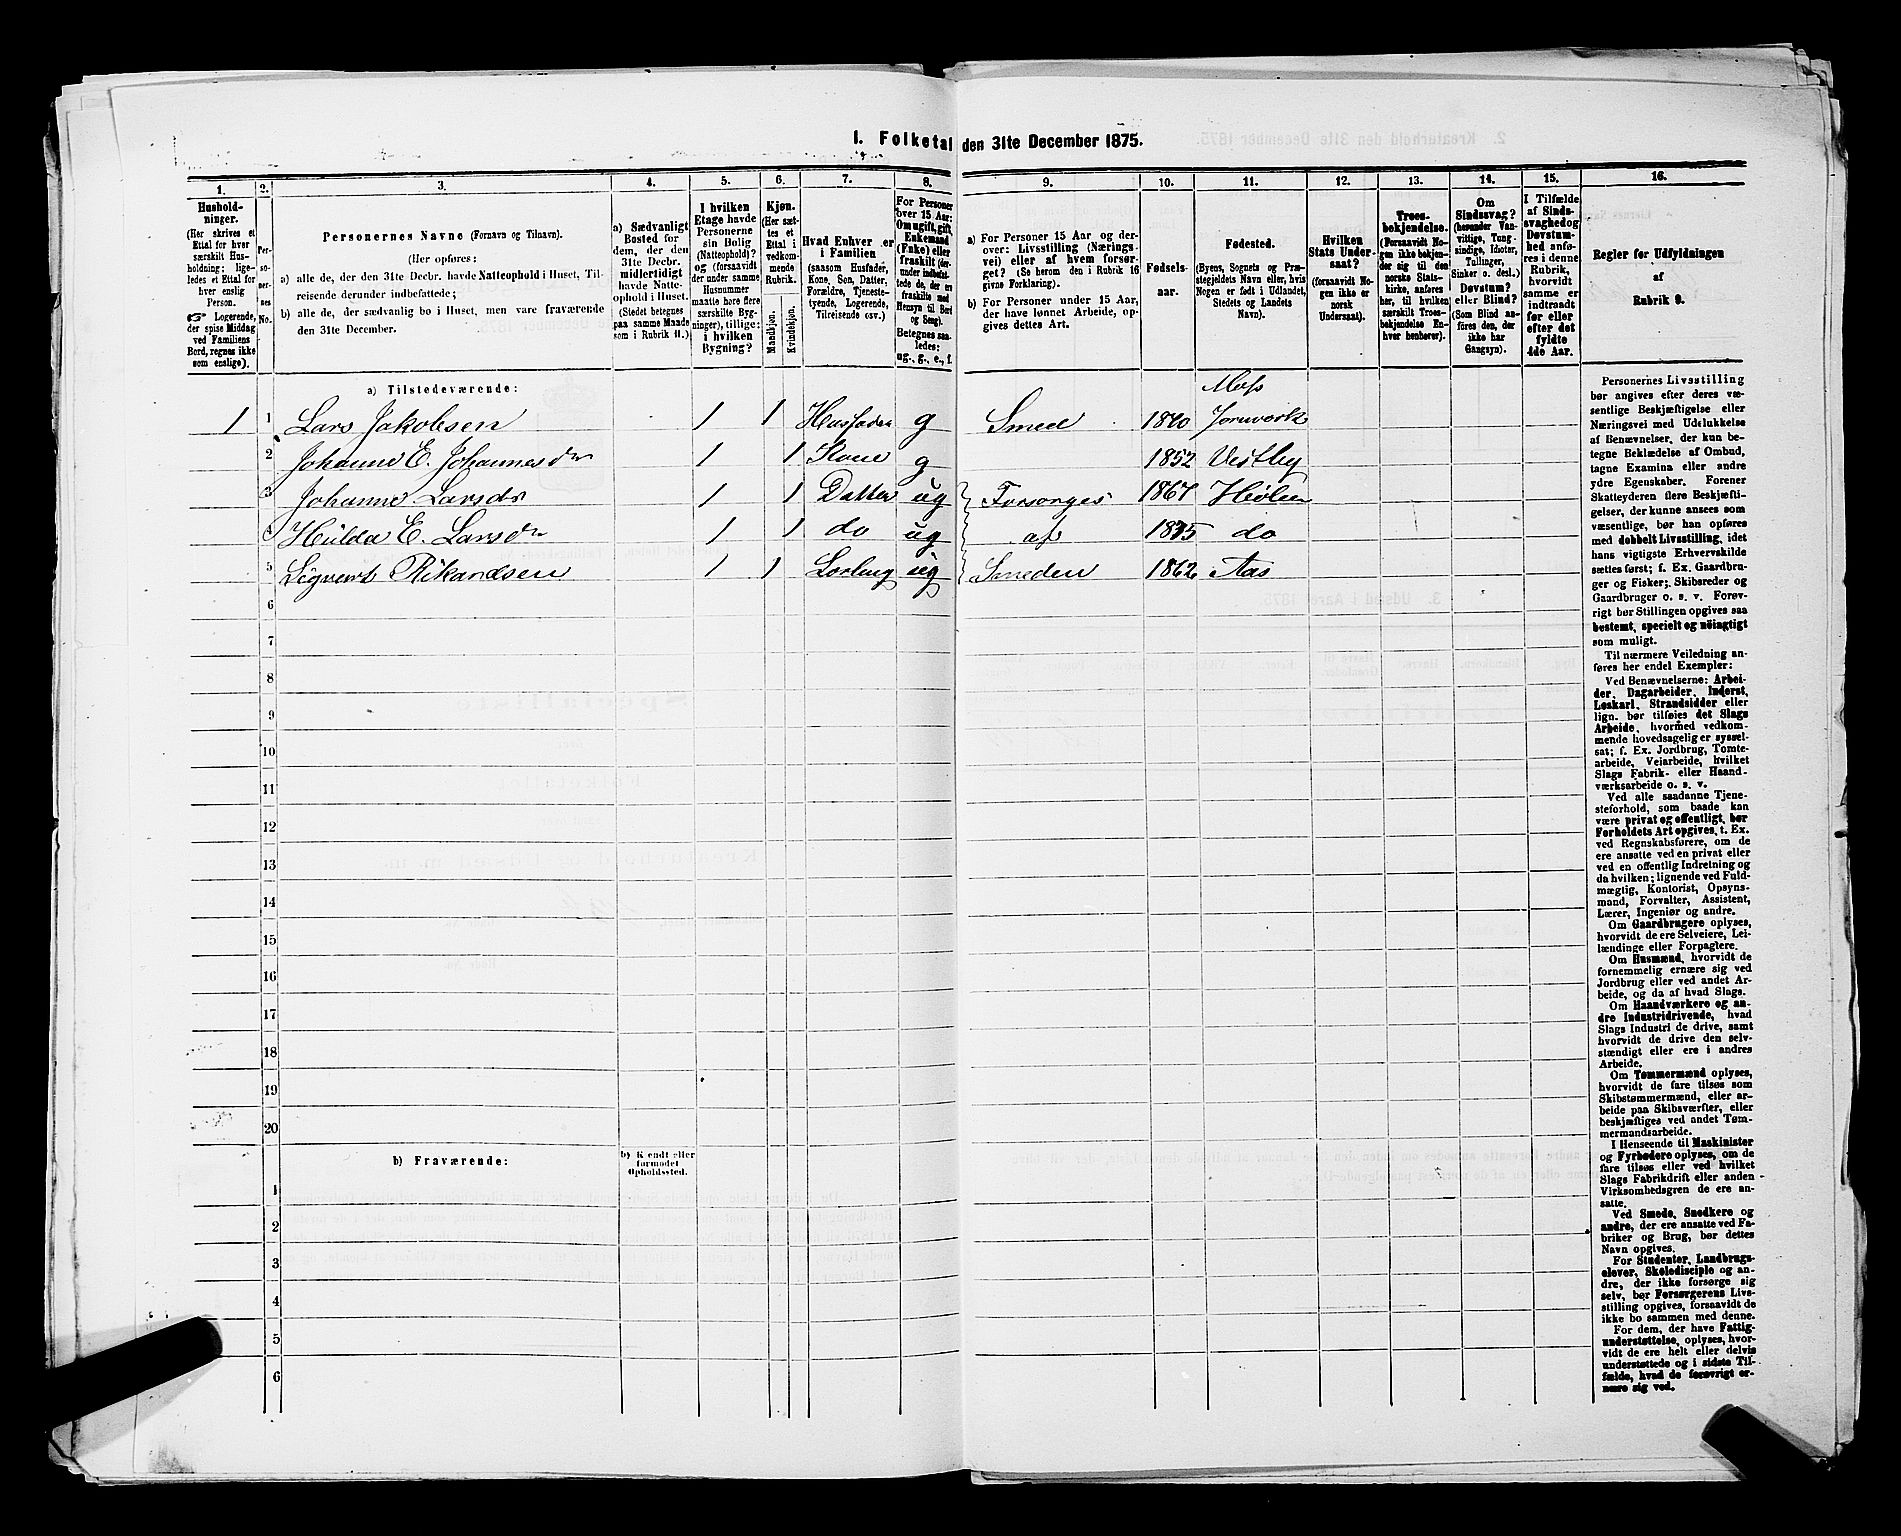 I. Folketal den 31te December 1875.
1. 2. 3. 4. 5. 6. 7. 8. 9. 10. 11. 12. 13. 14. 15. 16.
Hushold-
ninger.
(Her skrives et
Ettal for hver
særskilt Hus-
holdning; lige-
ledes et Ettal for
hver enslig
Person.
☞ Logerende,
der spise Middag
ved Familiens
Bord, regnes ikke
som enslige).
Per-
so-
ner-
nes
No.
Personernes Navne (Fornavn og Tilnavn).
(Her opføres:
a) alle de, der den 31te Decbr. havde Natteophold i Huset, Til-
reisende derunder indbefattede;
b) alle de, der sædvanlig bo i Huset, men vare fraværende
den 31te December.
a) Sædvanligt
Bosted for
dem, der den
31te Decbr.
midlertidigt
havde Natte-
ophold i Huset.
(Stedet betegnes
paa samme Maade
som i Rubrik 11.)
I hvilken
Etage havde
Personerne
sin Bolig
(Natteophold)?
og (forsaavidt
der under samme
Husnummer
maatte høre flere
særskilte Byg-
ninger), tillige:
i hvilken
Bygning?
Kjøn.
(Her sæt-
tes et
Ettal i
vedkom-
mende
Rubrik.
Mandkjøn.
Kvindekjøn.
Hvad Enhver er
i Familien
(saasom Husfader,
Kone, Søn, Datter,
Forældre, Tjeneste-
tyende, Logerende,
Tilreisende osv.)
For Personer
over 15 Aar:
Om ugift, gift,
Enkemand
(Enke) eller
fraskilt (der-
under indbefat-
tede de, der ere
fraskilte med
Hensyn til Bord
og Seng).
Betegnes saa-
ledes:
ug., g., e., f.
a) For Personer 15 Aar og der-
over: Livsstilling (Nærings-
vei) eller af hvem forsør-
get? (Se herom den i Rubrik 16
givne Forklaring).
b) For Personer under 15 Aar,
der have lønnet Arbeide, op-
gives dettes Art.
Fødsels-
aar.
Fødested.
(Byens, Sognets og Præ-
stegjeldets Navn eller, hvis
Nogen er født i Udlandet,
Stedets og Landets
Navn).
Hvilken
Stats Under-
saat?
(forsaavidt No-
gen ikke er
norsk
Undersaat).
Troes-
bekjendelse.
(Forsaavidt No-
gen ikke bekjen-
der sig til den
norske Stats-
kirke, anføres
her, til hvilken
særskilt Troes-
bekjendelse En-
hver henhører).
Om
Sindssvag?
(herunder Van-
vittige, Tung-
sindige, Idioter,
Tullinger,
Sinker o. desl.)
Døvstum?
eller Blind?
(Som Blind an-
føres den, der
ikke har
Gangsyn).
I Tilfælde
af Sinds-
svaghed og
Døvstum-
hed anfø-
res i denne
Rubrik,
hvorvidt
samme er
indtraadt
før eller
efter det
fyldte
4de Aar.
Regler for Udfyldningen
af
Rubrik 9.
a) Tilstedeværende:
Moss
1 1 Lars Jakobsen 1 1 Husfader g Smed 1840 Jernverk
2 Johanne E. Johannesdr 1 1 Kone g 1852 Vestby
3 Johanne Larsdr 1 1 Datter ug Forsørges 1867 Hvitsten
4 Hulda E. Larsdr 1 1 do ug af 1875 do
5 Sigvart Rikardsen 1 1 Losberg ug Smeden 1862 Aas
6
7
8
9
10
11
12
13
14
15
16
17
18
19
20
b) Fraværende:
b) Kjendt eller
formodet
Opholdssted.
1
2
3
4
5
6
Personernes Livsstilling
bør angives efter deres væ-
sentlige Beskjæftigelse eller
Næringsvei med Udelukkelse
af Benævnelser, der kun be-
tegne Beklædelse af Ombud,
tagne Examina eller andre
ydre Egenskaber. Forener
Skatteyderen flere Beskjæfti-
gelser, der kunne ansees som
væsentlige, bør han opføres
med dobbelt Livsstilling, idet
hans vigtigste Erhvervskilde
sættes først; f. Ex. Gaardbru-
ger og Fisker; Skibsreder og
Gaardbruger o. s. v. Forøv-
rigt bør Stillingen opgives saa
bestemt, specielt og nöiagtigt
som muligt.
Til nærmere Veiledning an-
føres her endel Exempler:
Ved Benævnelserne: Arbei-
der, Dagarbeider, Inderst,
Løskarl, Strandsidder eller
lign. bør tilføies det Slags
Arbeide, hvormed vedkom-
mende hovedsagelig er syssel-
sat; f. Ex. Jordbrug, Tomte-
arbeide, Veiarbeide, hvilket
Slags Fabrik- eller Haand-
værksarbeide o. s. v.
Ved alle saadanne Tjene-
steforhold, som baade kan
være privat og offentligt, bør
Forholdets Art opgives, t. Ex.
ved Regnskabsførere, om de
ere ansatte ved en privat eller
ved en offentlig Indretning og
da hvilken; lignende ved Fuld-
mægtig, Kontorist, Opsyns-
mand, Forvalter, Assistent,
Lærer, Ingeniør og andre.
Om Gaardbrugere oplyses,
hvorvidt de ere Selveiere, Lei-
lændinge eller Forpagtere.
Om Husmænd, hvorvidt de
fornemmelig ernære sig ved
Jordbrug eller ved andet Ar-
beide, og da af hvad Slags.
Om Haandværkere og an-
dre Industridrivende, hvad
Slags Industri de drive, samt
hvorvidt de drive den selv-
stændigt eller ere i andres
Arbeide.
Om Tømmermænd oplyses,
hvorvidt de fare tilsøs som
Skibstømmermænd, eller ar-
beide paa Skibsværfter, eller
beskjæftiges ved andet Tøm-
mermandsarbeide.
I Henseende til Maskinister
og Fyrbødere oplyses, om de
fare tilsøs eller ved hvilket
Slags Fabrikdrift eller anden
Virksombedsgren de ere an-
satte.
Ved Smede, Snedkere og
andre, der ere ansatte ved Fa-
briker og Brug, bør dettes
Navn opgives.
For Studenter, Landbrugs-
elever, Skoledisciple og an-
dre, der ikke forsørge sig
selv, bør Forsørgerens Livs-
stilling opgives, forsaavidt de
ikke bo sammen med denne.
For dem, der have Fattig-
understøttelse, oplyses, hvor-
vidt de ere helt eller delvis
understøttede og i sidste Til-
fælde, hvad de forøvrigt er-
nære sig ved.